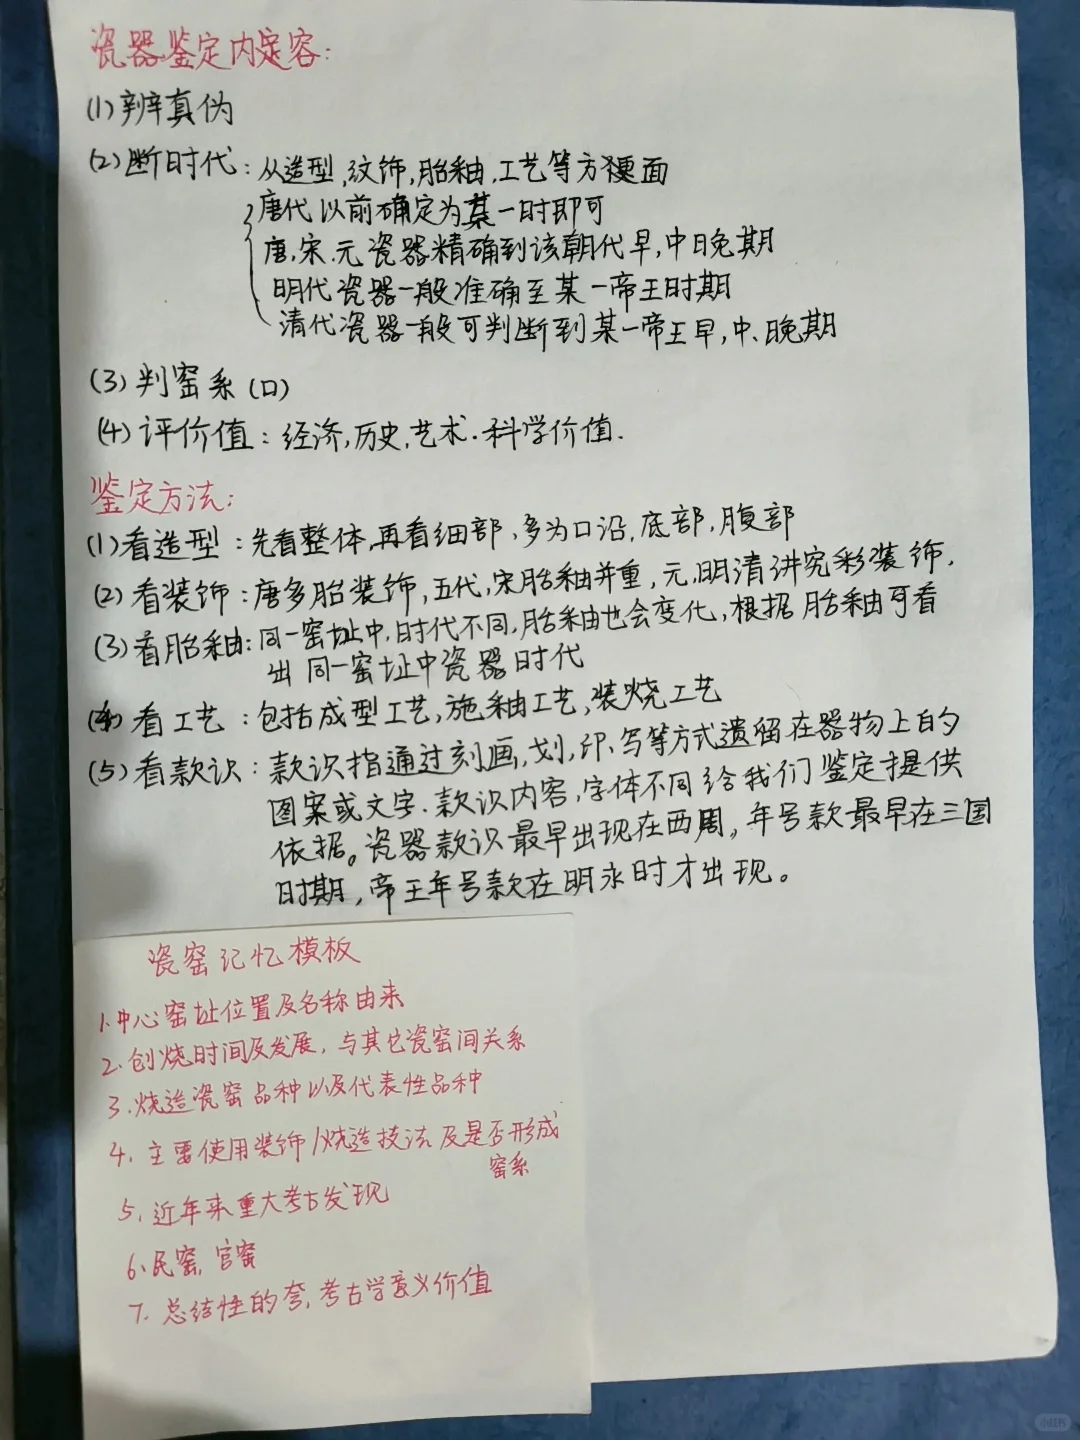 瓷器鉴定内定容：
(1) 辨真伪
(2) 断时代：从造型，纹饰，胎釉，工艺等方面
唐代以前确定为某一时即可
唐，宋，元瓷器精确到该朝代早，中日晚期
明代瓷器一般准确至某一帝王时期
清代瓷器一般可判断到某一帝王早，中、晚期
(3) 判窑系(口)
(4) 评价值：经济，历史，艺术．科学价值．
鉴定方法：
(1) 看造型：先看整体，再看细部，多为口沿，底部，腹部
(2) 看装饰：唐多胎装饰，五代，宋胎釉并重，元，明清讲究彩装饰．
(3) 看胎釉：同一窑址中，时代不同，胎釉也会变化，根据胎釉可看
出同一窑址中瓷器时代
(4) 看工艺：包括成型工艺，施釉工艺，装烧工艺
(5) 看款识：款识指通过刻画，划，印、写等方式遗留在器物上的
图案或文字．款识内容，字体不同给我们鉴定提供
依据。瓷器款识最早出现在西周，年号款最早在三国
时期，帝王年号款在明永时才出现。
瓷窑记忆模板
1.中心窑址位置及名称由来
2.创烧时间及发展，与其它瓷窑间关系
3.烧造瓷窑品种以及代表性品种
4.主要使用装饰/烧造技法及是否形成
窑系
5.近年来重大考古发现
6.民窑，官窑
7.总结性的夸，考古学意义价值